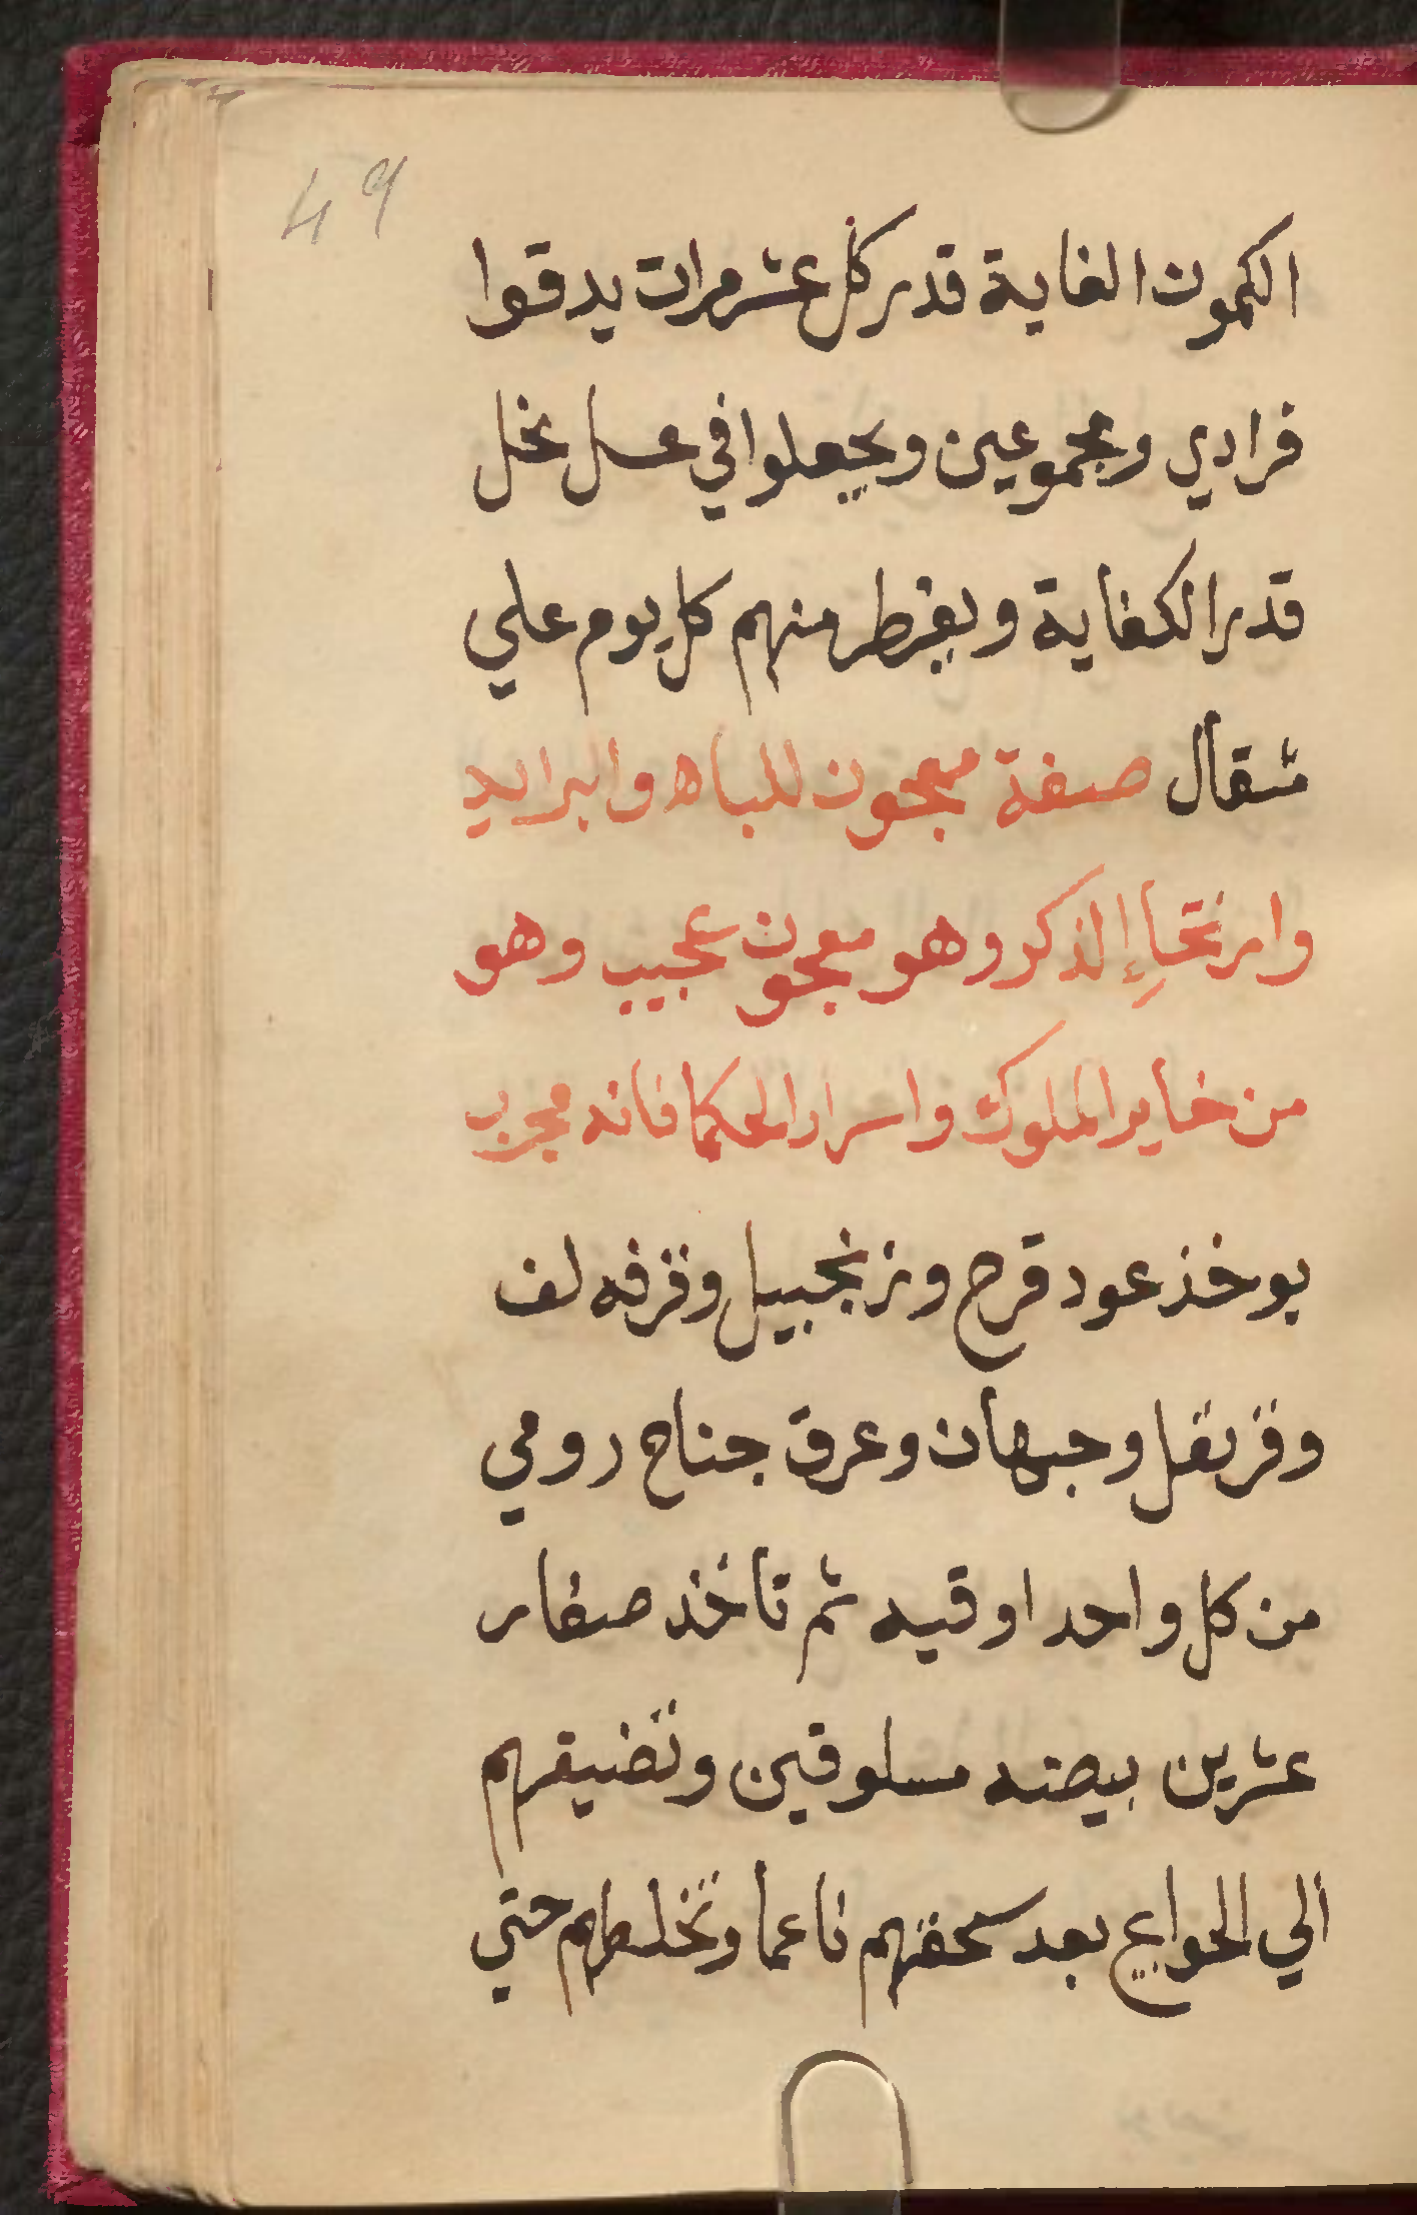 49
الكمون الغاية قدر كل عشر مرات يدقوا
فرادي ومجموعين ويجعلوا في عسل نحل
قدر الكفاية ويفطر منهم كل يوم علي
مثقال صفة معجون للباه والبرايد
وارتخاء الذكر وهو معجون عجيب وهو
من خاير الملوك واسرار الحكما فانه مجرب
يوخذ عود قرح وزنجبيل وقرفه لف
وقرنفل وحبهان وعرق جناح رومي
من كل واحد اوقيه ثم تاخذ صفار
عشرين بيضه مسلوقين وتضيفهم
الي الحوايج بعد سحقهم ناعما وتخلطهم حتي